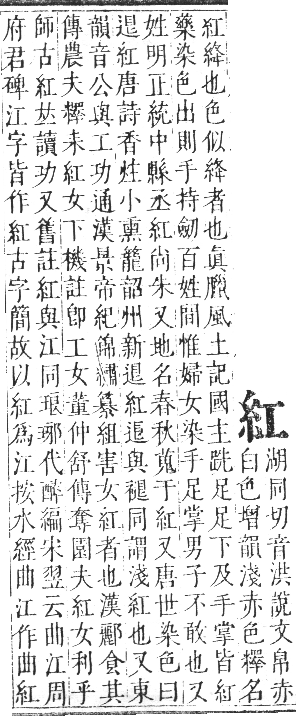 紅
湖同切音洪說文帛赤
白色增韻淺赤色釋名
紅絳也色似絳者也眞臘風土記國主跣足足下及手掌皆紅
藥染色出則手持劒百姓間惟婦女染手足掌男子不敢也又
姓明正統中縣丞紅尚朱又地名春秋蒐于紅又唐世染色曰
退紅唐詩香炷小熏籠韶州新退紅退與褪同謂淺紅也又東
韻音公與工功通漢景帝紀錦繡纂組害女紅者也漢酈食其
傳農夫釋耒紅女下機註卽工女董仲舒傳奪園夫紅女利乎
師古紅𠀤讀功又舊註紅與江同琅琊代醉編宋翌云曲江周
府君碑江字皆作紅古字簡故以紅爲江按水經曲江作曲紅